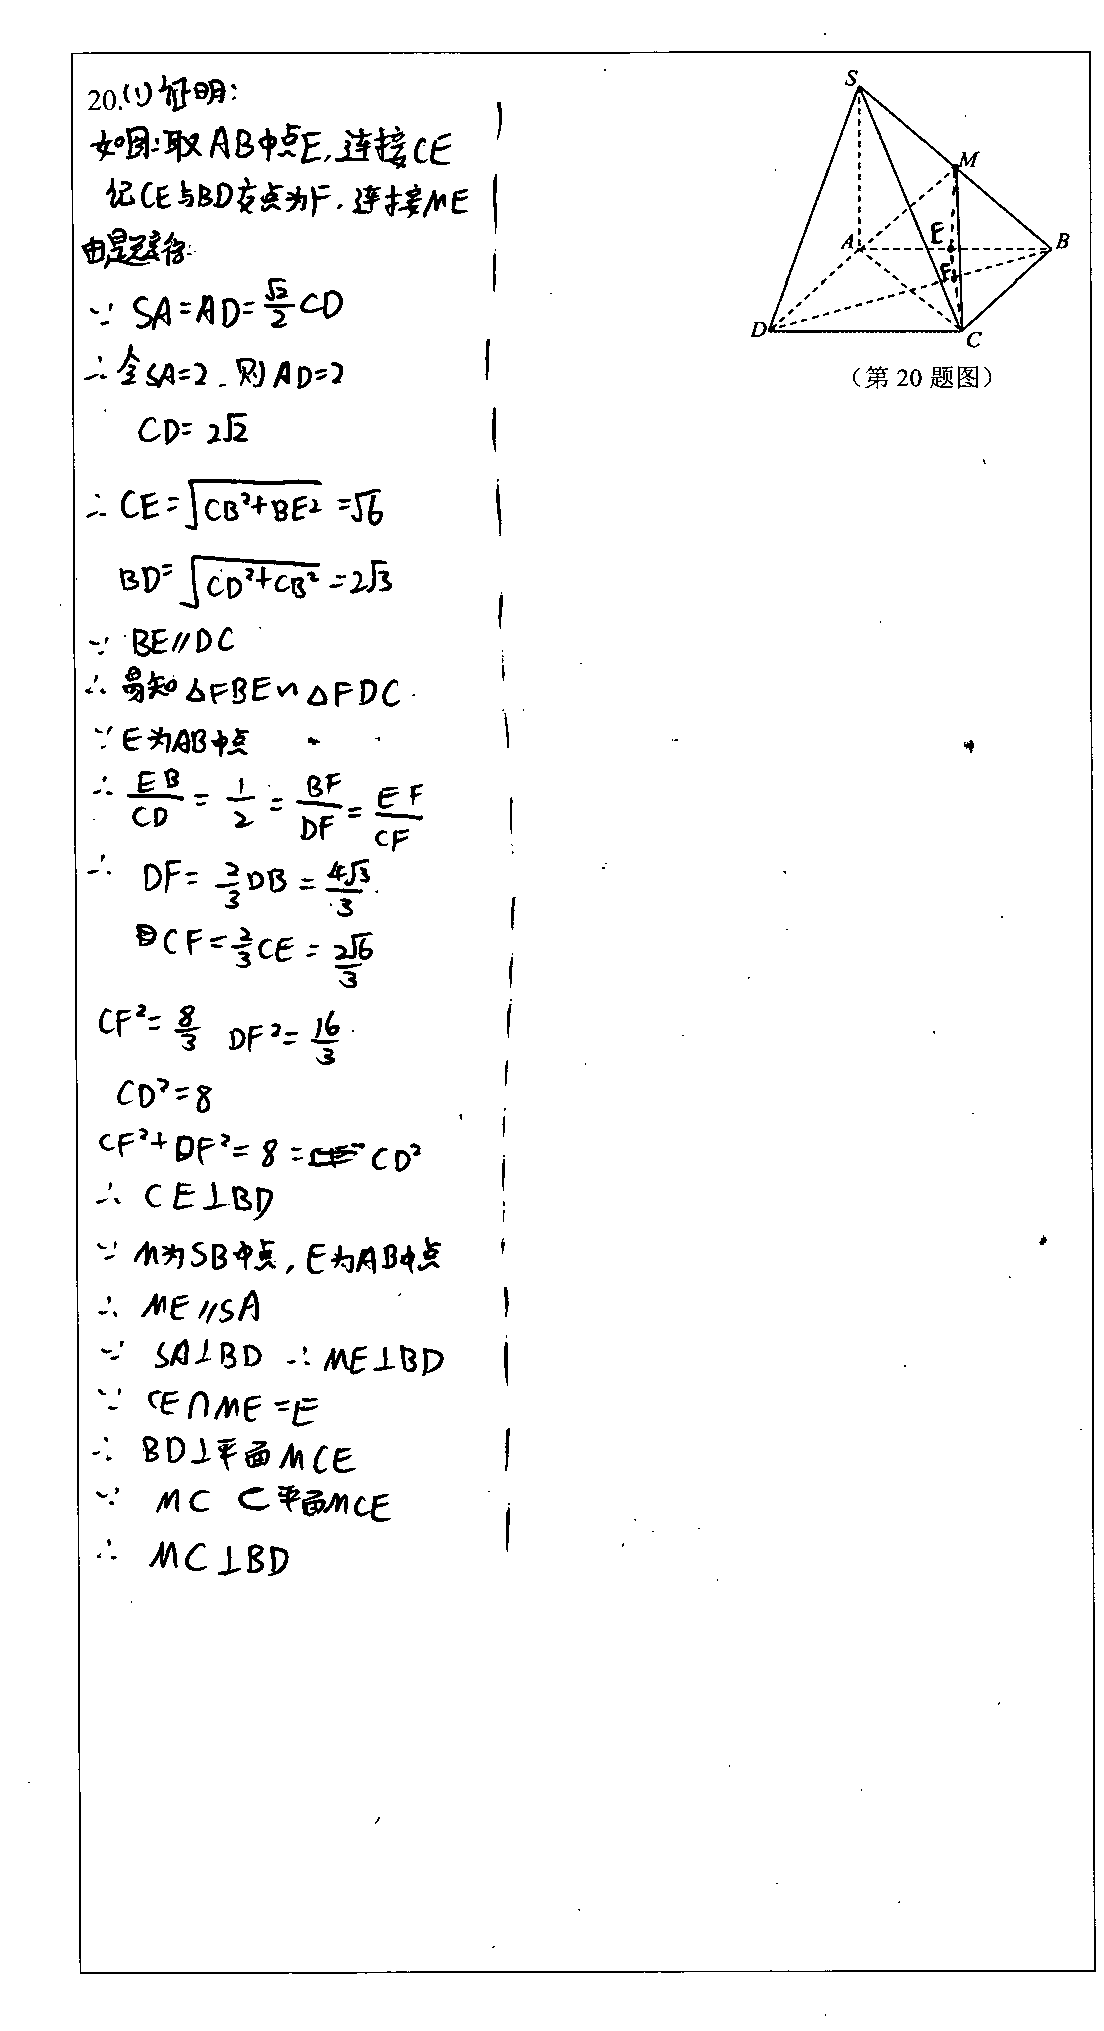 20.(1)证明:
如图:取AB中点E,连接CE
记CE与BD交点为F,连接ME
由题意得:
∵ SA=AD=√2/2 CD
∴令SA=2,则AD=2
CD=2√2
∴ CE=√(CB²+BE²)=√6
BD=√(CD²+CB²)=2√3
∵ BE∥DC
∴ 易知△FBE∽△FDC
∵E为AB中点
∴ EB/CD = 1/2 = BF/DF = EF/CF
∴ DF=2/3 DB=4√3/3
CF=2/3 CE=2√6/3
CF²=8/3 DF²=16/3
CD²=8
CF²+DF²=8=CD²
∴ CE⊥BD
∵ M为SB中点,E为AB中点
∴ ME∥SA
∵ SA⊥BD ∴ME⊥BD
∵ CE∩ME=E
∴ BD⊥平面MCE
∵ MC⊂平面MCE
∴ MC⊥BD
S
M
A
E
B
F
D
C
(第20题图)